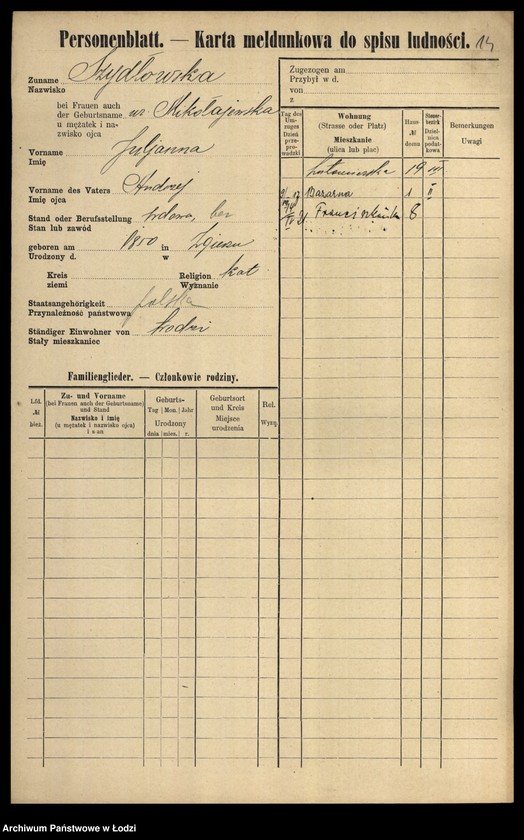 Personenblatt. — Karta meldunkowa do spisu ludności. 14
Zuname Szydłowska
Nazwisko
bei Frauen auch
der Geburtsname ur. Mikołajewska
u mężatek i na-
zwisko ojca
Vorname Juljanna
Imię
Vorname des Vaters Andrzej
Imię ojca
Stand oder Berufsstellung wdowa, bez
Stan lub zawód
geboren am 1850 in Zgierzu
Urodzony d. w
Kreis Religion kat
ziemi Wyznanie
Staatsangehörigkeit polska
Przynależność państwowa
Ständiger Einwohner von Łodzi
Stały mieszkaniec
Zugezogen am
Przybył w d.
von
z
Tag des Um-zuges Dzień prze-prowadzki
Wohnung
(Strasse oder Platz)
Mieszkanie
(ulica lub plac)
Haus-
№
domu
Steuer-
bezirk
Dziel-
nica
podat-
kowa
Bemerkungen
Uwagi
Lutomierska 19
Bazarna 1 II
Franciszkańska 8
Familienglieder. — Członkowie rodziny.
Lfd.
№
bież.
Zu- und Vorname
(bei Frauen auch der Geburtsname)
und Stand
Nazwisko i imię
(u mężatek i nazwisko ojca)
i stan
Geburts-
Tag Mon. Jahr
Urodzony
dnia mies. r.
Geburtsort
und Kreis
Miejsce
urodzenia
Rel.
Wyzn.
Archiwum Państwowe w Łodzi